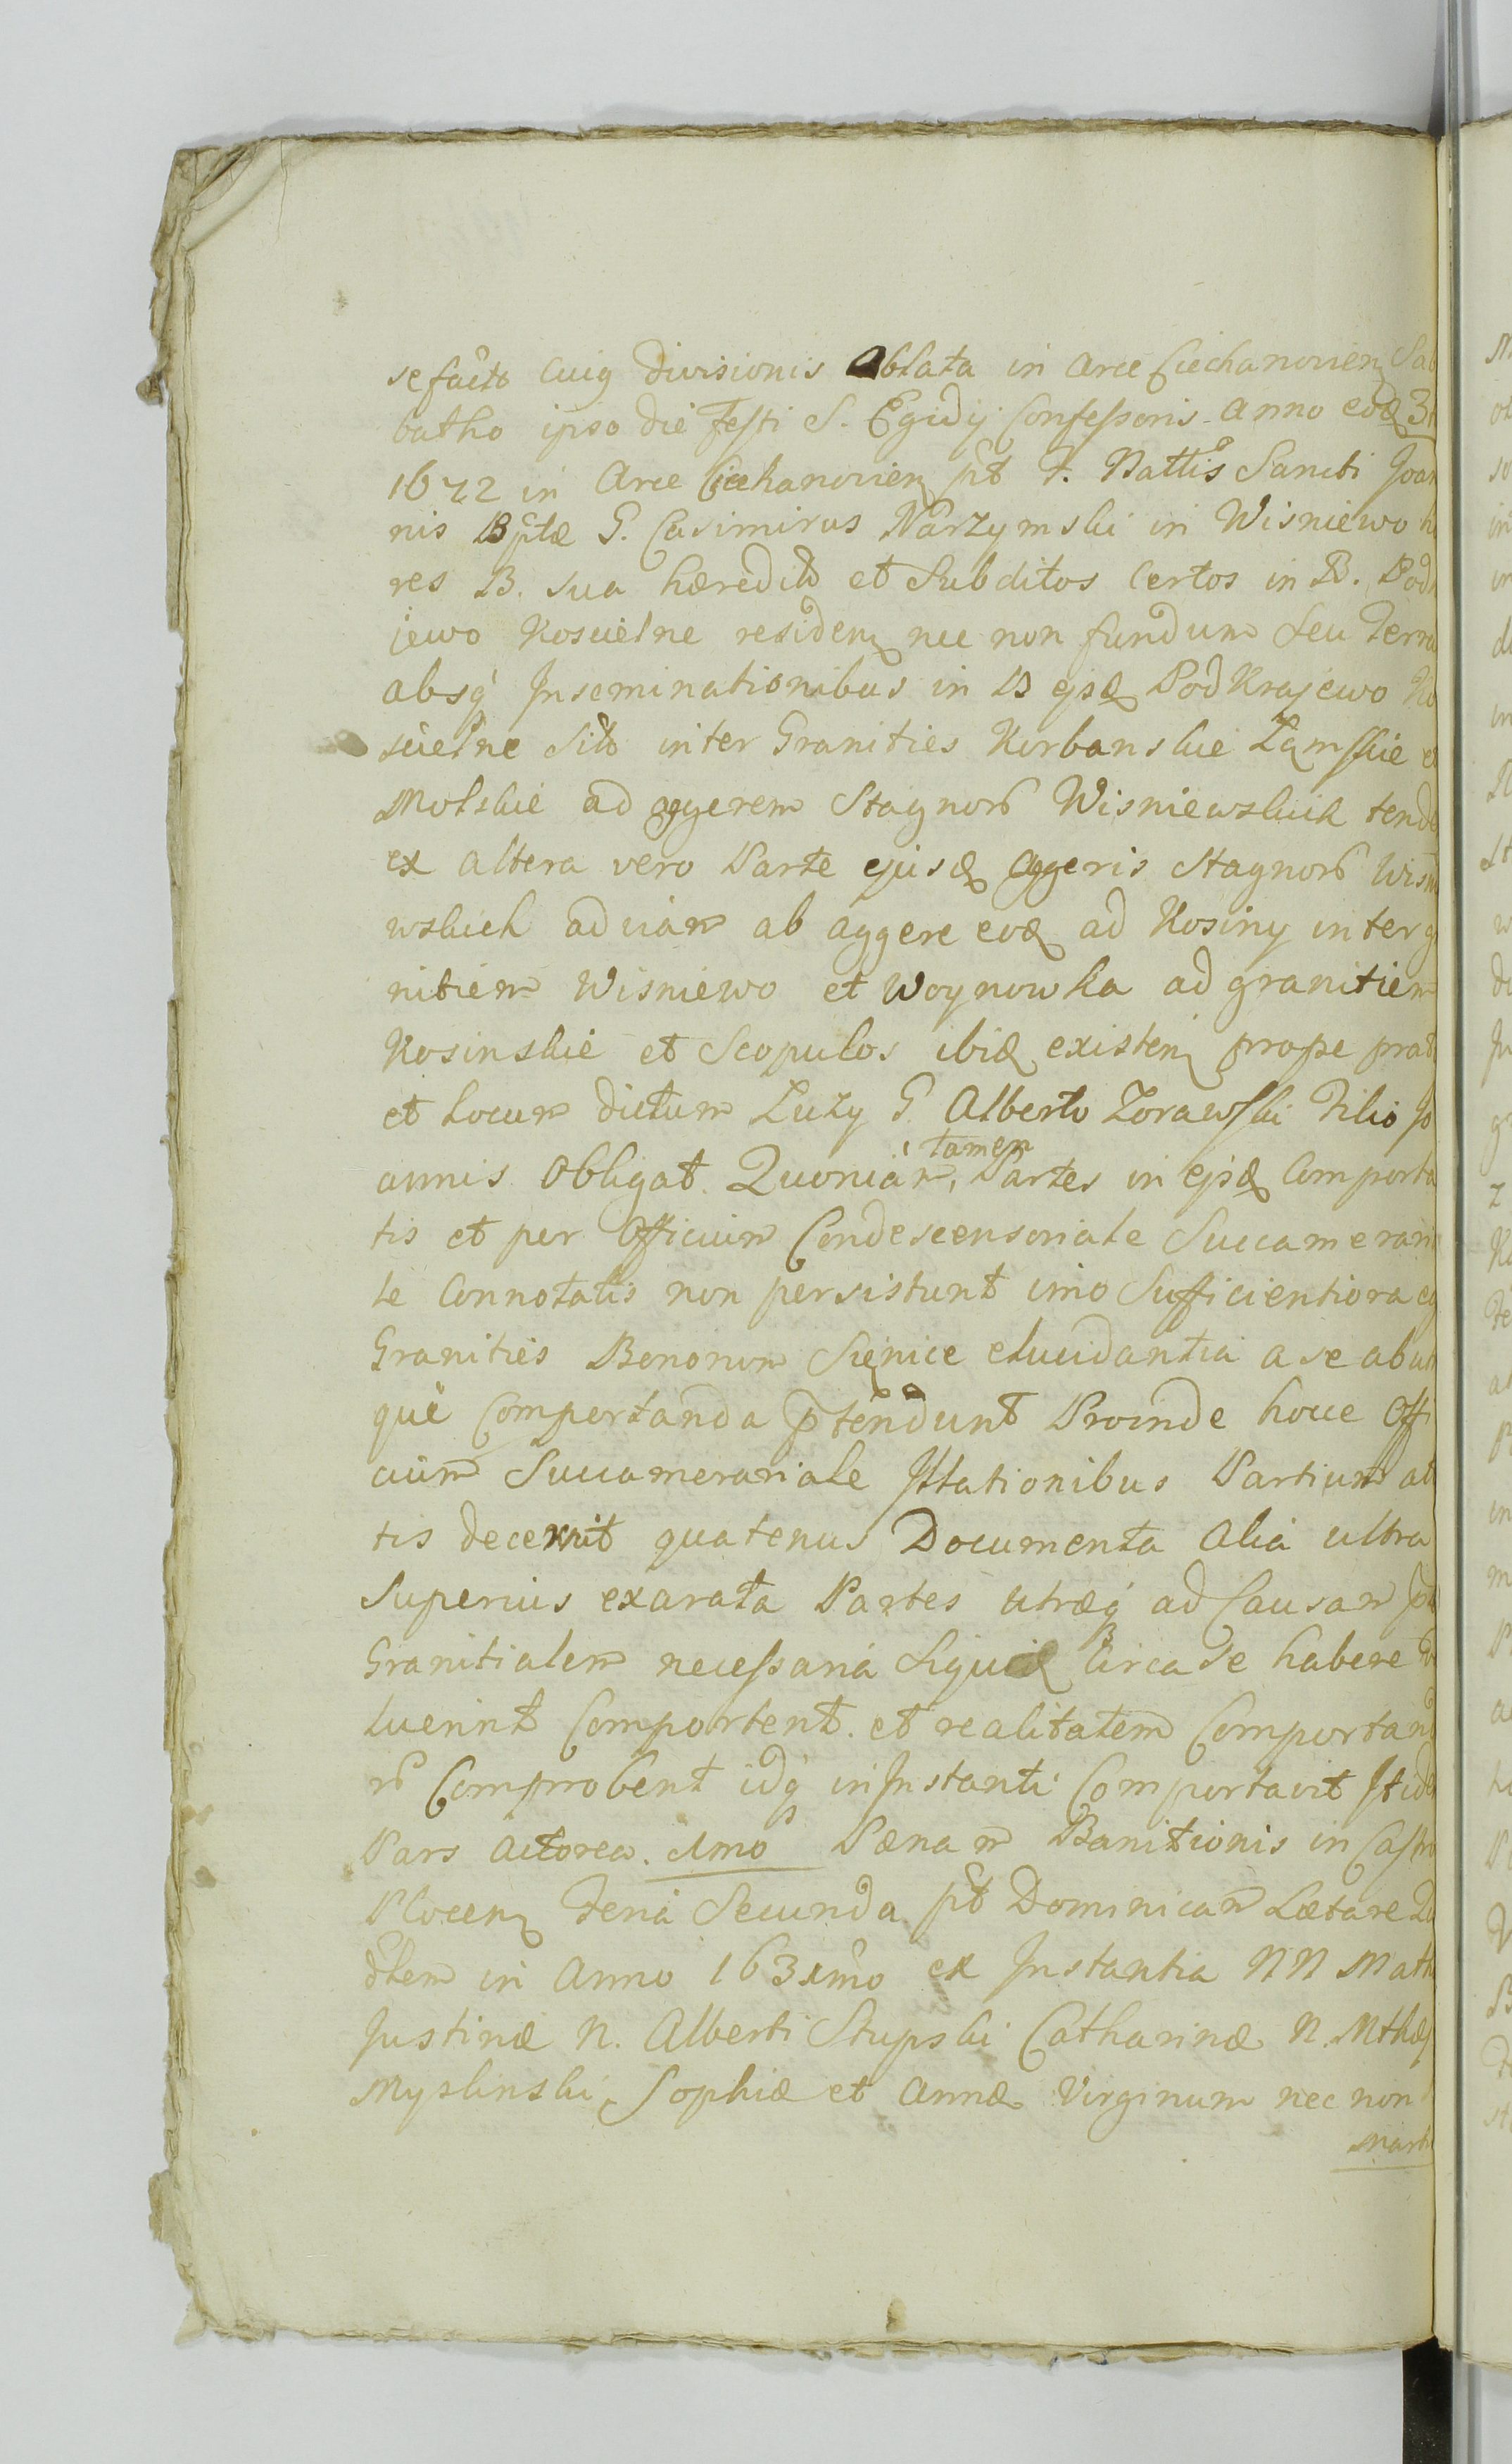 se facto cuiq divisionis Oblata in Arce Ciechanovien Sab
batho ipso die Festi S. Egidij Confessoris Anno eod 3t
1672 in Arce Ciechanovien pt F. Nattis Sancti Joan
nis Bptæ G. Casimirus Narzymski in Wisniewo hæ
res B. sua hæredit et Subditos certos in B. Podk
jewo Koscielne residen nec non fundum seu Terra
absq Inseminationibus in B ejsd Podkrajewo Ko
scielne Sito inter Granities Kurbanskie Zemskie et
Molskie ad aggerem Stagnor Wisniewskich tende
ex altera vero Parte ejusd Aggeris Stagnor Wisn
wskich ad viam ab aggere eod ad Kosiny inter g
nitiem Wisniewo et Woynowka ad granitiem
Kosinskie et Scopulos ibid existen prope prat
et Locum dictum Luzy G. Alberto Zorawski Filio Jo
annis Obligat. Quoniam, tamen Partes in ejsd Comporta
tis et per Officium Condescensoriale Succamerari
le Connotatis non persistunt imo Sufficientiora eq
Granities Bonorum Sienice elucidantia a se ab ut
que Comportanda ptendunt Proinde hocce Offi
cium Succamerariale Illationibus Partium at
tis decernit quatenus Documenta alia ultra
superius exarata Partes utræq ad Causam
Granitialem necessaria Siquid Circa se habere
luerint Comportent. et realitatem Comportand
r Comprobent idq in Instanti Comportavit Itid
Pars Actorea. 1mo Pænam Banitionis in Castro
Plocen Feria Secunda pt Dominicam Lætare
dtem in Anno 1631mo ex Instantia NN Math
Justinæ N. Alberti Stupski Catharinæ N. Mthæ
Myslinski, Sophiæ et Annæ Virginum nec non
Marti